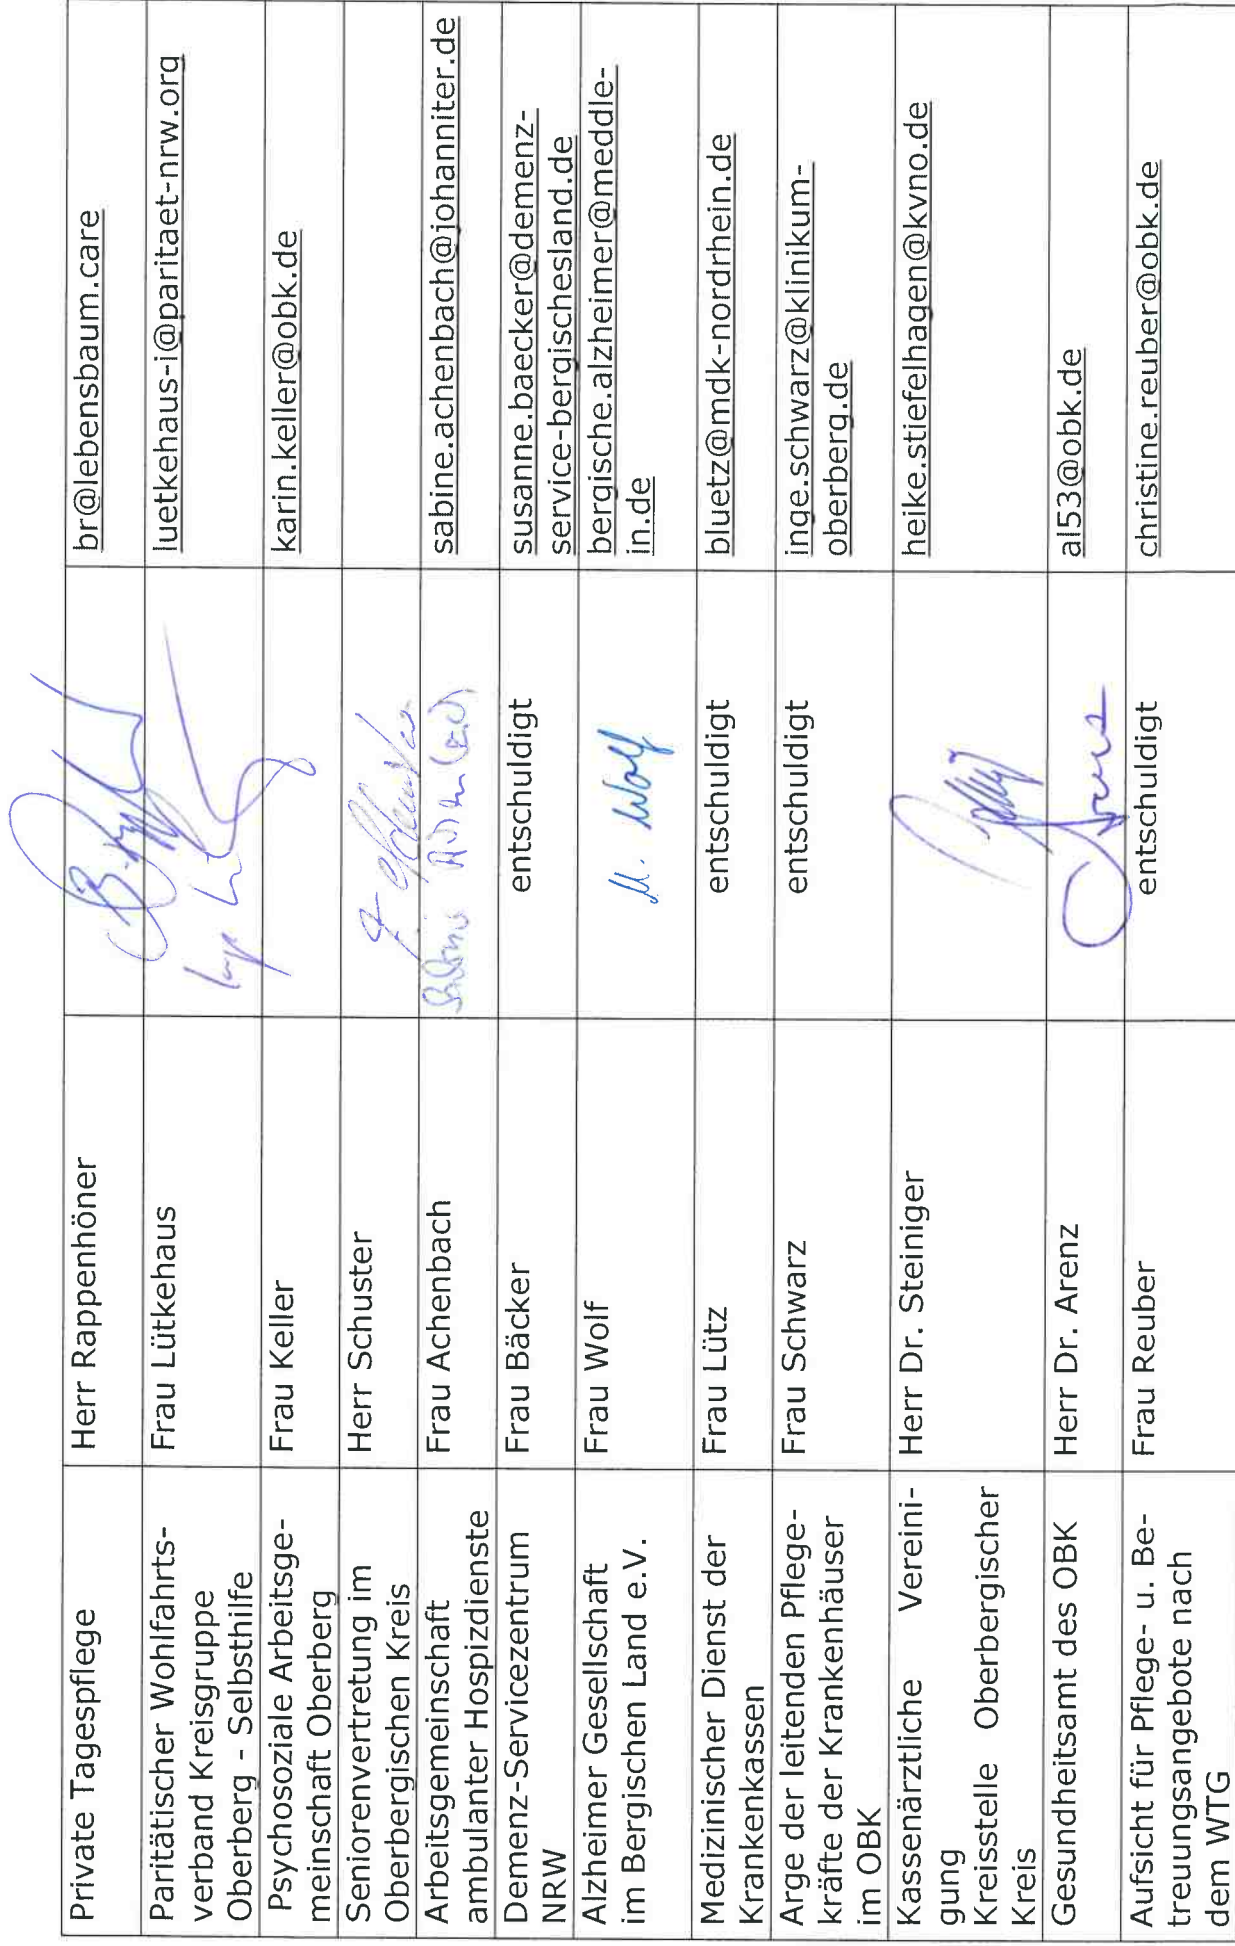 Private Tagespflege
Herr Rappenhöner
br@lebensbaum.care
Paritätischer Wohlfahrts-
verband Kreisgruppe
Oberberg - Selbsthilfe
Frau Lütkehaus
luetkehaus-i@paritaet-nrw.org
Psychosoziale Arbeitsge-
meinschaft Oberberg
Frau Keller
karin.keller@obk.de
Seniorenvertretung im
Oberbergischen Kreis
Herr Schuster
Arbeitsgemeinschaft
ambulanter Hospizdienste
Frau Achenbach
sabine.achenbach@johanniter.de
Demenz-Servicezentrum
NRW
Frau Bäcker
entschuldigt
susanne.baecker@demenz-
service-bergischesland.de
Alzheimer Gesellschaft
im Bergischen Land e.V.
Frau Wolf
M. Wolf
bergische.alzheimer@meddle-
in.de
Medizinischer Dienst der
Krankenkassen
Frau Lütz
entschuldigt
bluetz@mdk-nordrhein.de
Arge der leitenden Pflege-
kräfte der Krankenhäuser
im OBK
Frau Schwarz
entschuldigt
inge.schwarz@klinikum-
oberberg.de
Kassenärztliche Vereini-
gung
Kreisstelle Oberbergischer
Kreis
Herr Dr. Steiniger
heike.stiefelhagen@kvno.de
Gesundheitsamt des OBK
Herr Dr. Arenz
al53@obk.de
Aufsicht für Pflege- u. Be-
treuungsangebote nach
dem WTG
Frau Reuber
entschuldigt
christine.reuber@obk.de